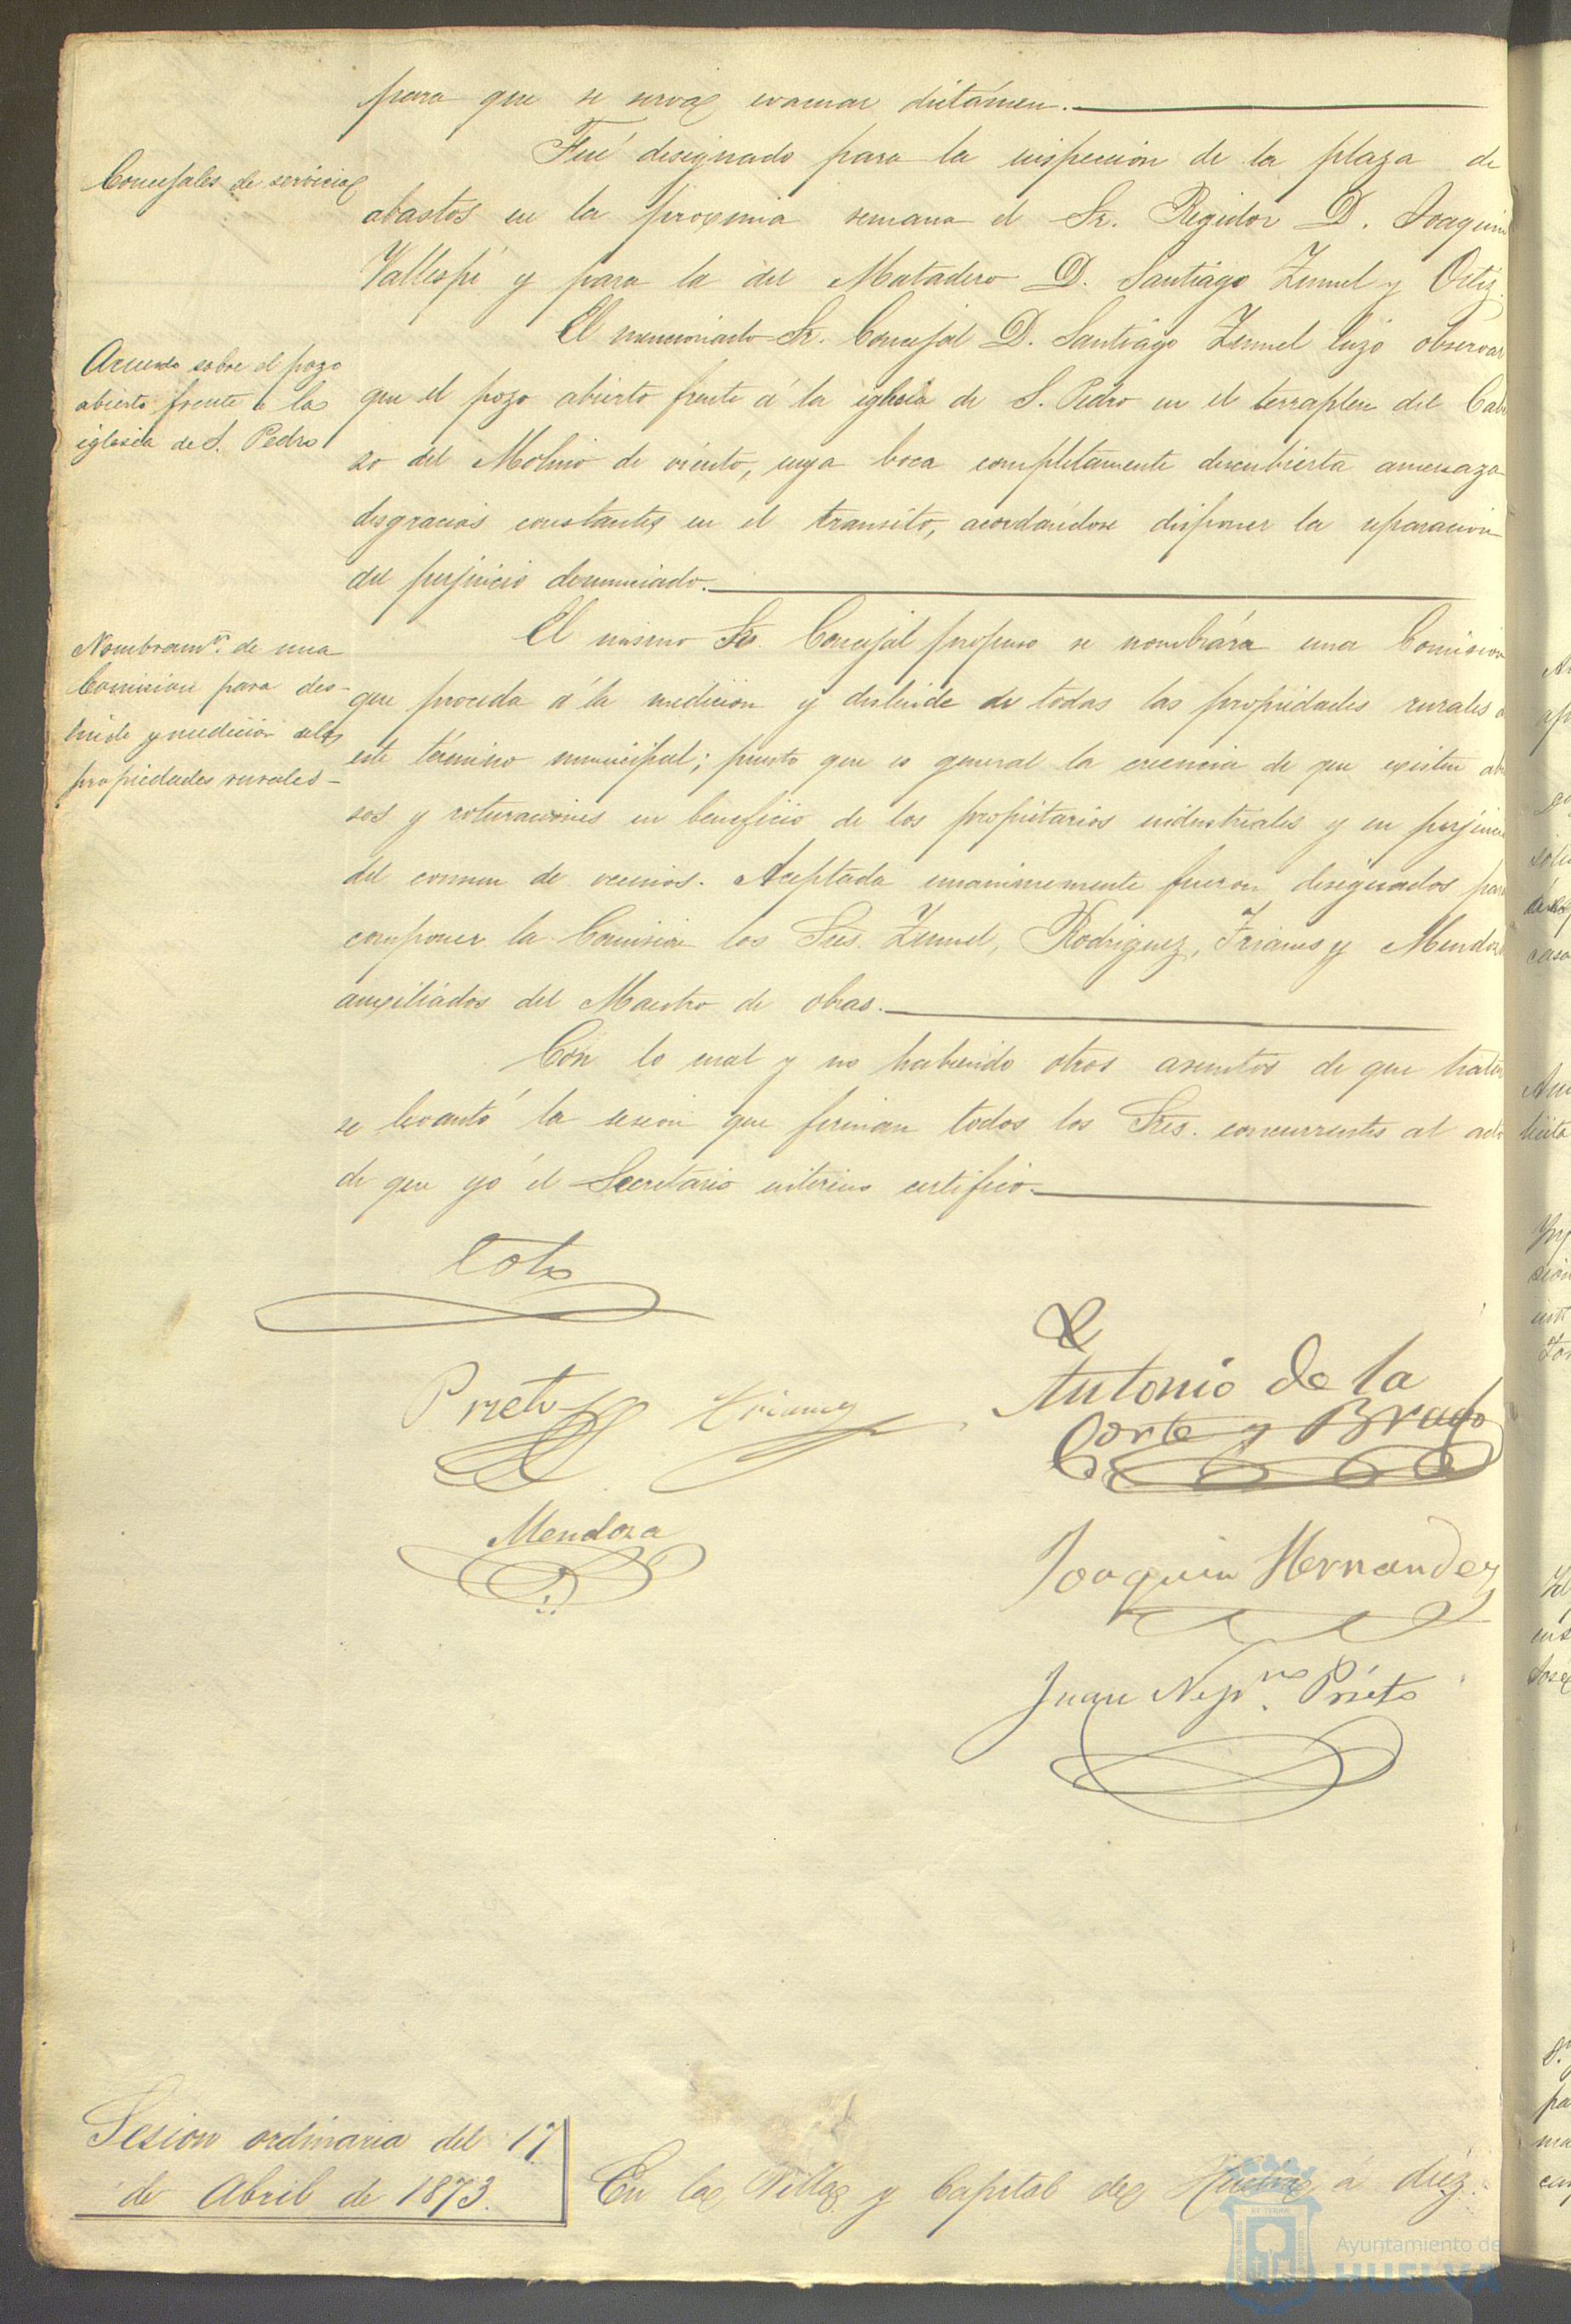 para que se sirva evacuar dictámen.
Concejales de servicio
Fué designado para la inspeccion de la plaza de
abastos en la proxima semana el Sr. Regidor D. Joaquin
Vallespi y para la del Matadero D. Santiago Zunul y Ortiz.
Acuerdo sobre el pozo
abierto frente á la
iglesia de S. Pedro
El mencionado Sr. Concejal D. Santiago Zunul hizo observar
que el pozo abierto frente á la iglesia de S. Pedro en el terraplen del Cabe
zo del Molino de viento, cuya boca completamente descubierta amenaza
desgracias constantes en el transito, acordándose disponer la reparacion
del perjuicio denunciado.
Nombramto. de una
Comision para des-
linde y medicion de las
propiedades rurales-
El mismo Sr. Concejal propuso se nombrára una Comision
que proceda á la medicion y deslinde de todas las propiedades rurales
este término municipal; puesto que es general la creencia de que existen abu
sos y roturaciones en beneficio de los propietarios industriales y en perjuicio
del comun de vecinos. Aceptada unanimemente fueron designados para
componer la Comision los Sres. Zunul, Rodriguez, Trianes y Mendoza
auxiliados del Maestro de obras.
Con lo cual y no habiendo otros asuntos de que tratar
se levantó la sesion que firman todos los Sres. concurrentes al acto
de que yo el Secretario interino certifico.
Coto
Prieto Trianes
Antonio de la
Corte y Bravo
Mendoza
Joaquin Hernandez
Juan Nepno. Prieto
Sesion ordinaria del 17
de Abril de 1873.
En la Villa y Capital de Huelva á diez
Ayuntamiento de
HUELVA